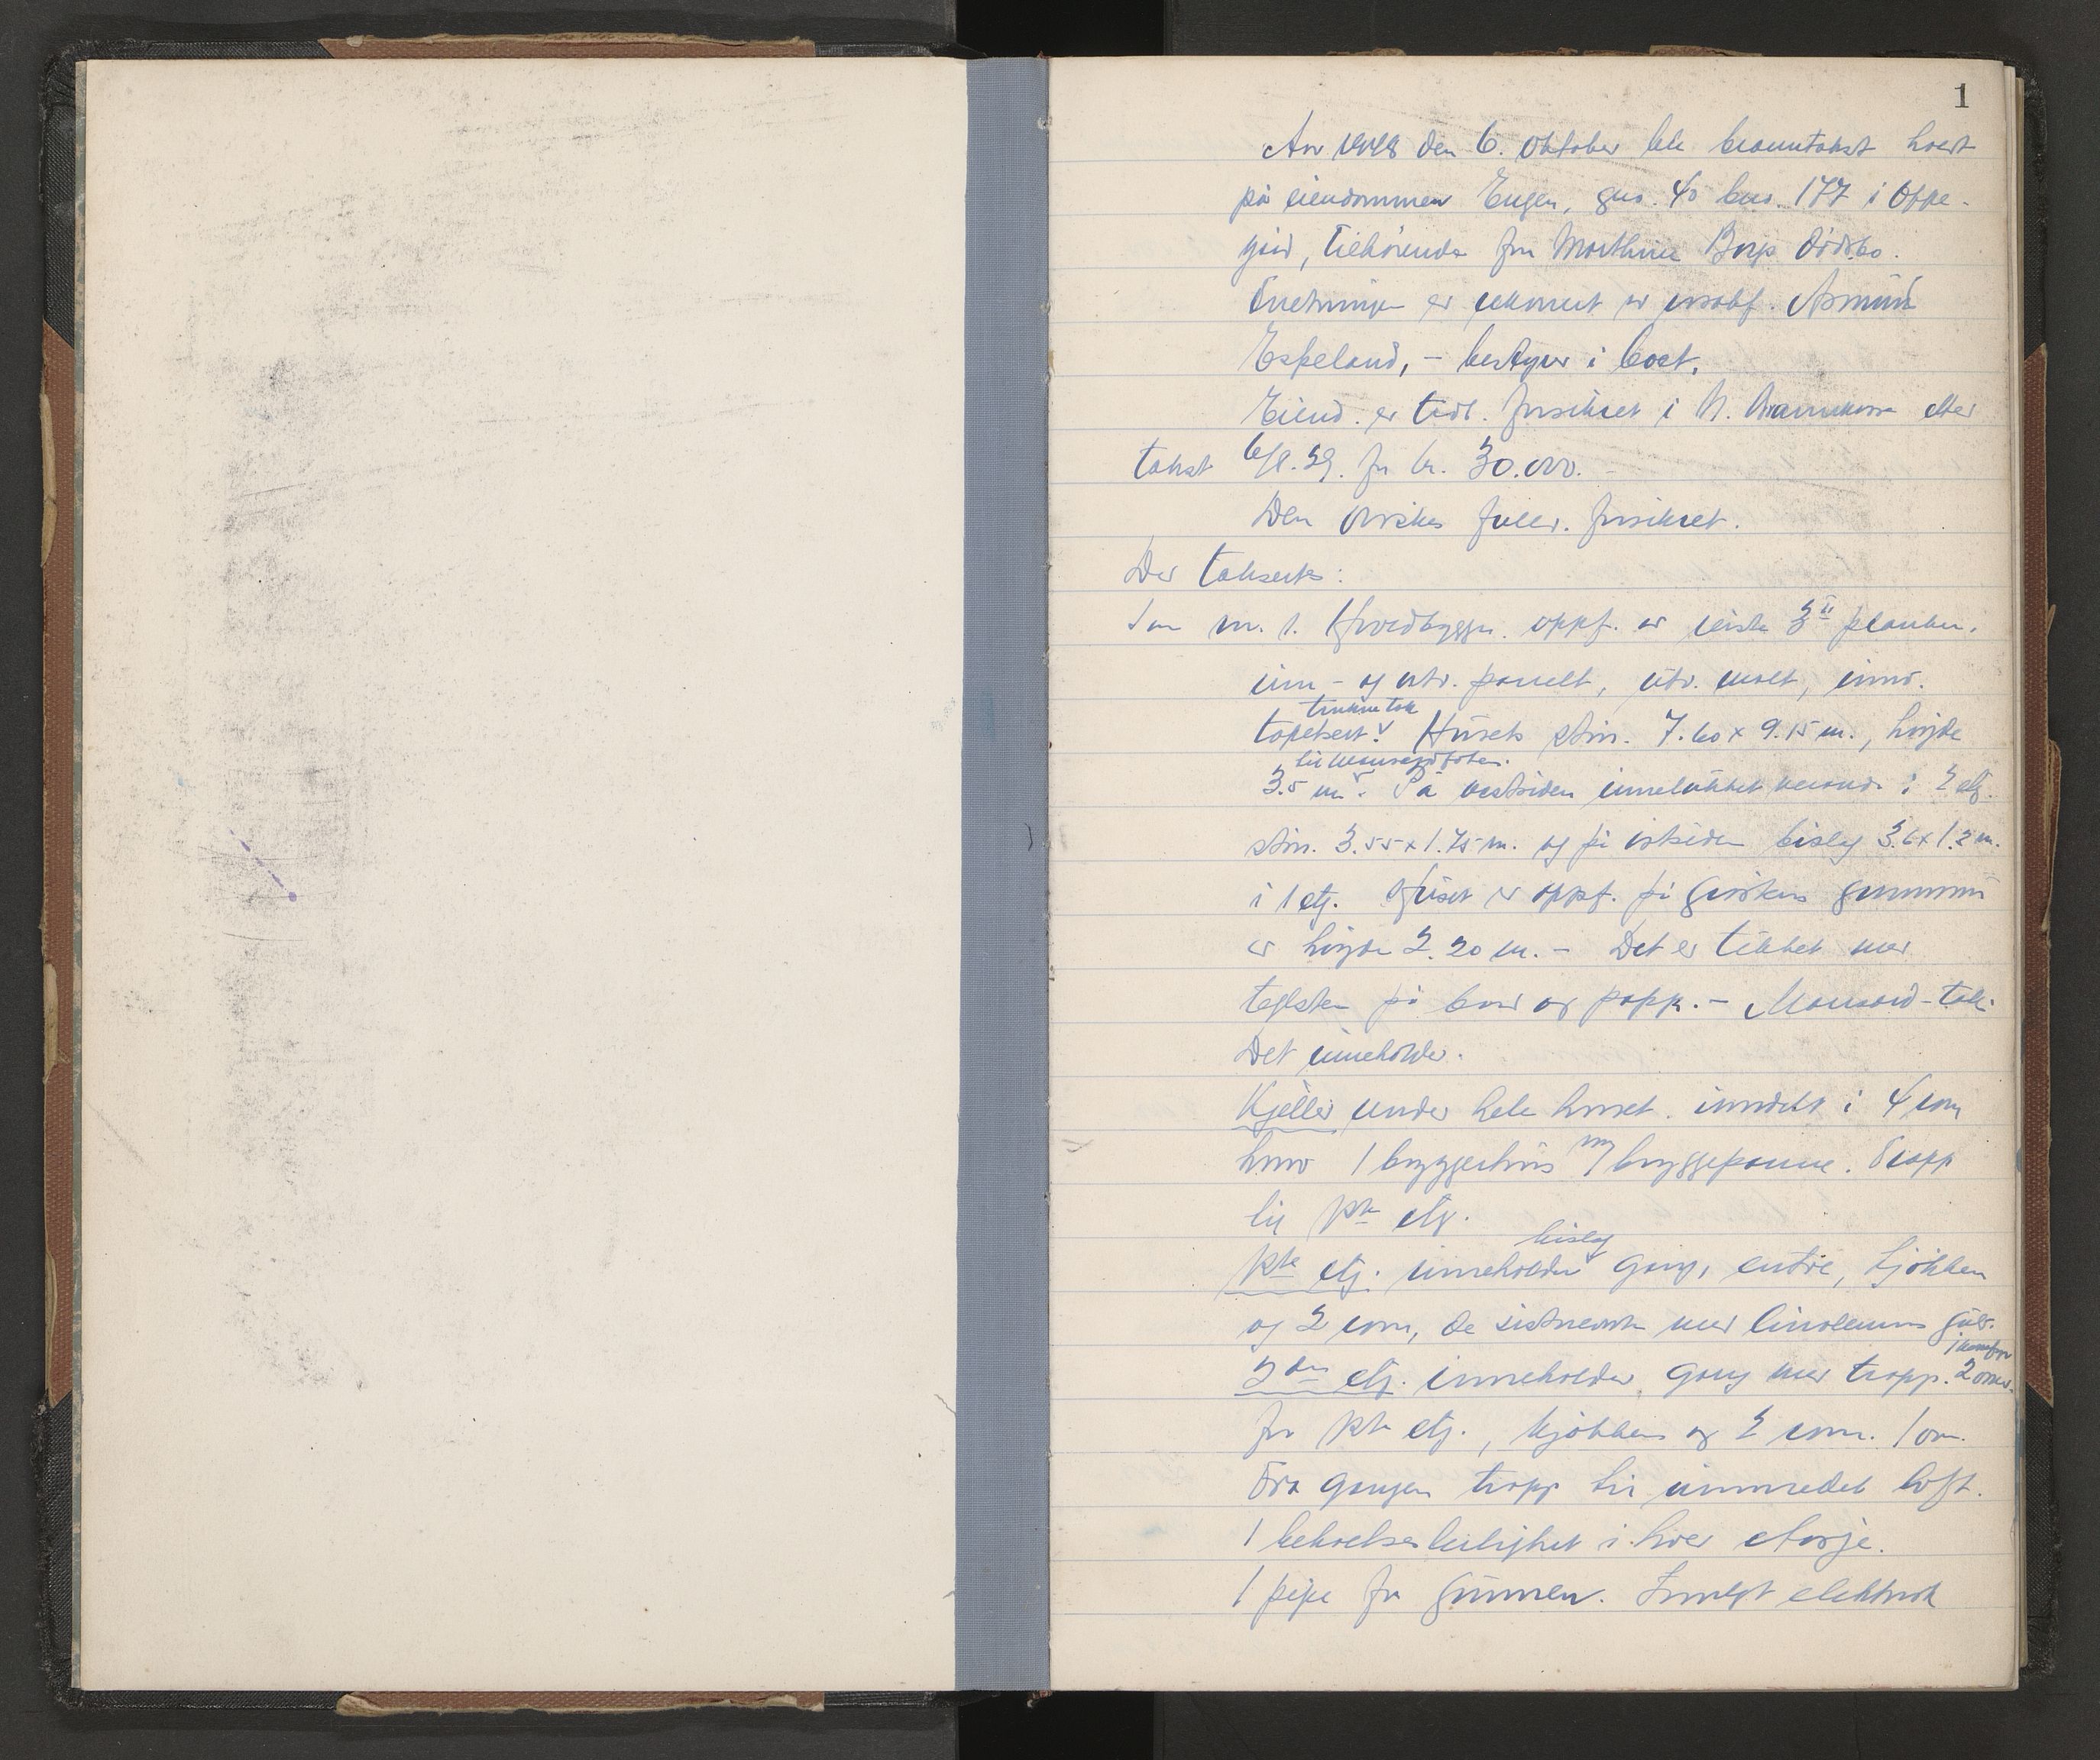 1
År 1948 den 6. oktober ble branntakst holdt
på eiendommen Engen, gno. 40 bno. 177 i Oppe-
gård, tilhørende fru Marthine Borgs dødsbo.
Forretningen er rekvirert av o.r.sakf. Asmund
Espeland, - bestyrer i boet.
Eiend. er tidl. forsikret i N. Brannkasse etter
takst 6/8.29. for kr. 30.000.-
Den ønskes fullv. forsikret.
Der takseres:
Som nr. 1. Hovedbyggn. oppf. av reiste 3" planker.
inn- og utv. panelt, utv. malt, innv.
trukne tak
tapetsert. Husets størr. 7.60 x 9.15 m., høyde
til mansardfoten.
3.5 m. På vestsiden innelukket veranda i 2 etg.
størr. 3.55 x 1.75 m. og på østsiden bislag 3.6 x 1.2 m.
i 1 etg. Huset er oppf. på gråstens grunnmur
av høyde 2.20 m. - Det er tekket med
teglsten på bord og papp. - Mansard-tak.
Det inneholder.
Kjeller under hele huset. inndelt i 4 rom
hvorav 1 bryggerhus m/ bryggepanne. Trapp
til 1ste etg.
bislag
1ste etg. inneholder gang, entré, kjøkken
og 2 rom, de sistnevnte med linoleums gulv.
2den etg. inneholder gang med trapp. 2 ovner.
fra 1ste etg., kjøkken og 2 rom. 1 ovn.
Fra gangen trapp til uinnredet loft.
1 bekvelseleilighet i hver etasje.
1 pipe fra grunnen. Innlagt elektrisk